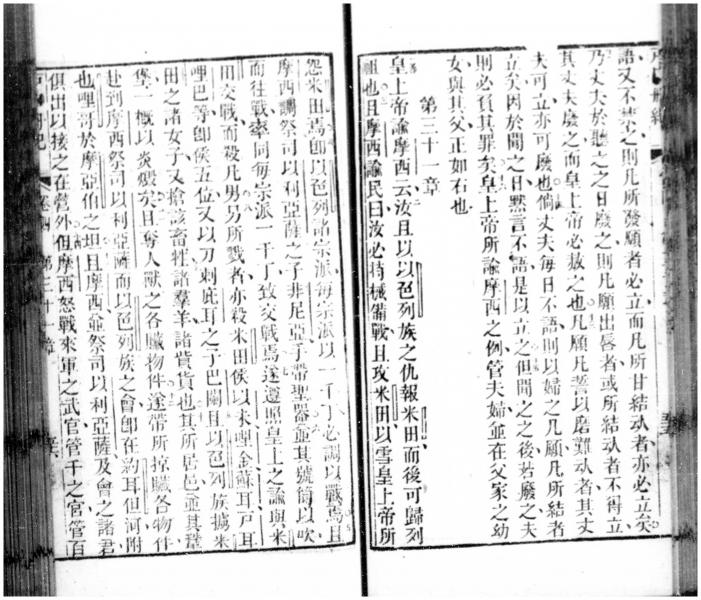 語又不禁之則凡所發願者必立而凡所甘結㔹者亦必立矣
乃丈夫於聽之之日廢之則凡願出唇者或所結㔹者不得立
其丈夫廢之而皇上帝必赦之也凡願凡誓以磨難㔹者其丈
夫可立亦可廢也倘丈夫每日不語則以婦之凡願凡所結者
立矣因於聞之日黙言不語是以立之但聞之之後若廢之夫
則必負其罪矣皇上帝所諭摩西之例管夫婦並在父家之幼
女與其父正如右也
第三十一章
皇上帝諭摩西云汝且以以色列族之仇報米田而後可歸列
祖也且摩西諭民曰汝必持械備戰且攻米田以雪皇上帝所
怨米田焉卽以色列諸宗派每宗派以一千丁必調以戰焉且
摩西調祭司以利亞薩之子非尼亞子帶聖器並其號筒以吹
而往戰率同每宗派一千丁致交戰焉遂遵照皇上之諭與米
田交戰而殺凡男另所戮者亦殺米田侯以未哩金蘇耳戸耳
哩巴等卽侯五位又以刀刺庇耳之子巴闌且以色列族擄米
田之諸女子又搶該畜牲諸羣羊諸貲貨也其所居邑並其鞏
堡一概以炎燬矣且奪人獸之各贜物件遂帶所掠贜各物件
赴到摩西祭司以利亞薩而以色列族之會卽在約耳但河附
也哩哥於摩亞伯之坦且摩西並祭司以利亞薩及會之諸君
俱出以接之在營外但摩西怒戰來軍之武官管千之官管百
第三十一章